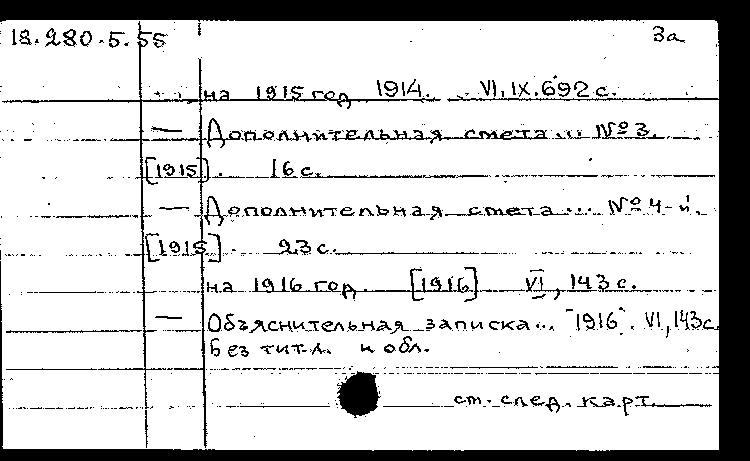 18.280.5.55 3а
на 1915 год 1914. VI, IX. 692 с.
— Дополнительная смета... № 3.
[1915]. 16 с.
— Дополнительная смета... № 4-й.
[1915]. 23 с.
на 1916 год. [1916] VI, 143 с.
— Объяснительная записка... 1916. VI, 143 с.
Без тит.л. и обл.
ст. след. карт.